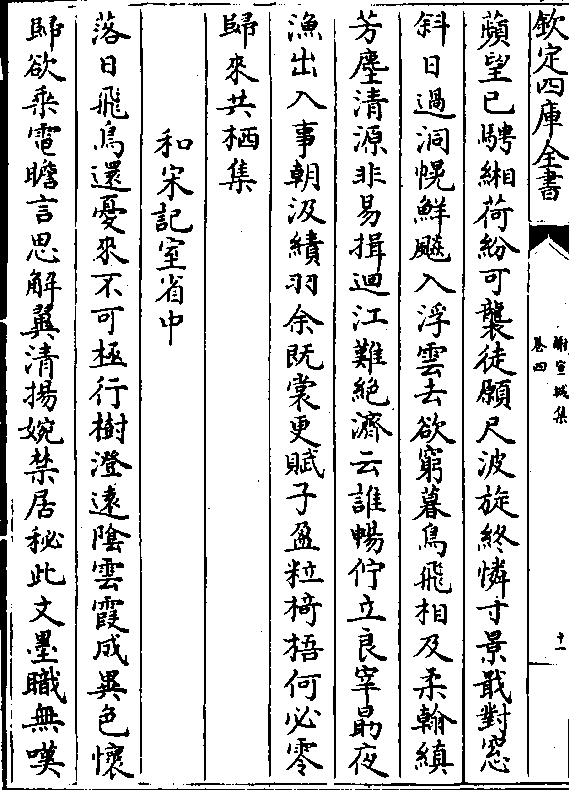 欽定四庫全書
謝宣城集
卷四
十一
蘋望已騁緗荷紛可襲徒願尺波旋終憐寸景戢對窓
斜日過洞幌鮮飈入浮雲去欲窮暮鳥飛相及柔翰縝
芳塵清源非易揖迴江難絶濟云誰暢佇立良宰朂夜
漁出入事朝汲績羽余既裳更賦子盈粒椅梧何必零
歸來共栖集
和宋記室省中
落日飛鳥還憂來不可極行樹澄遠陰雲霞成異色懷
歸欲乘電瞻言思解翼清揚婉禁居秘此文墨職無嘆